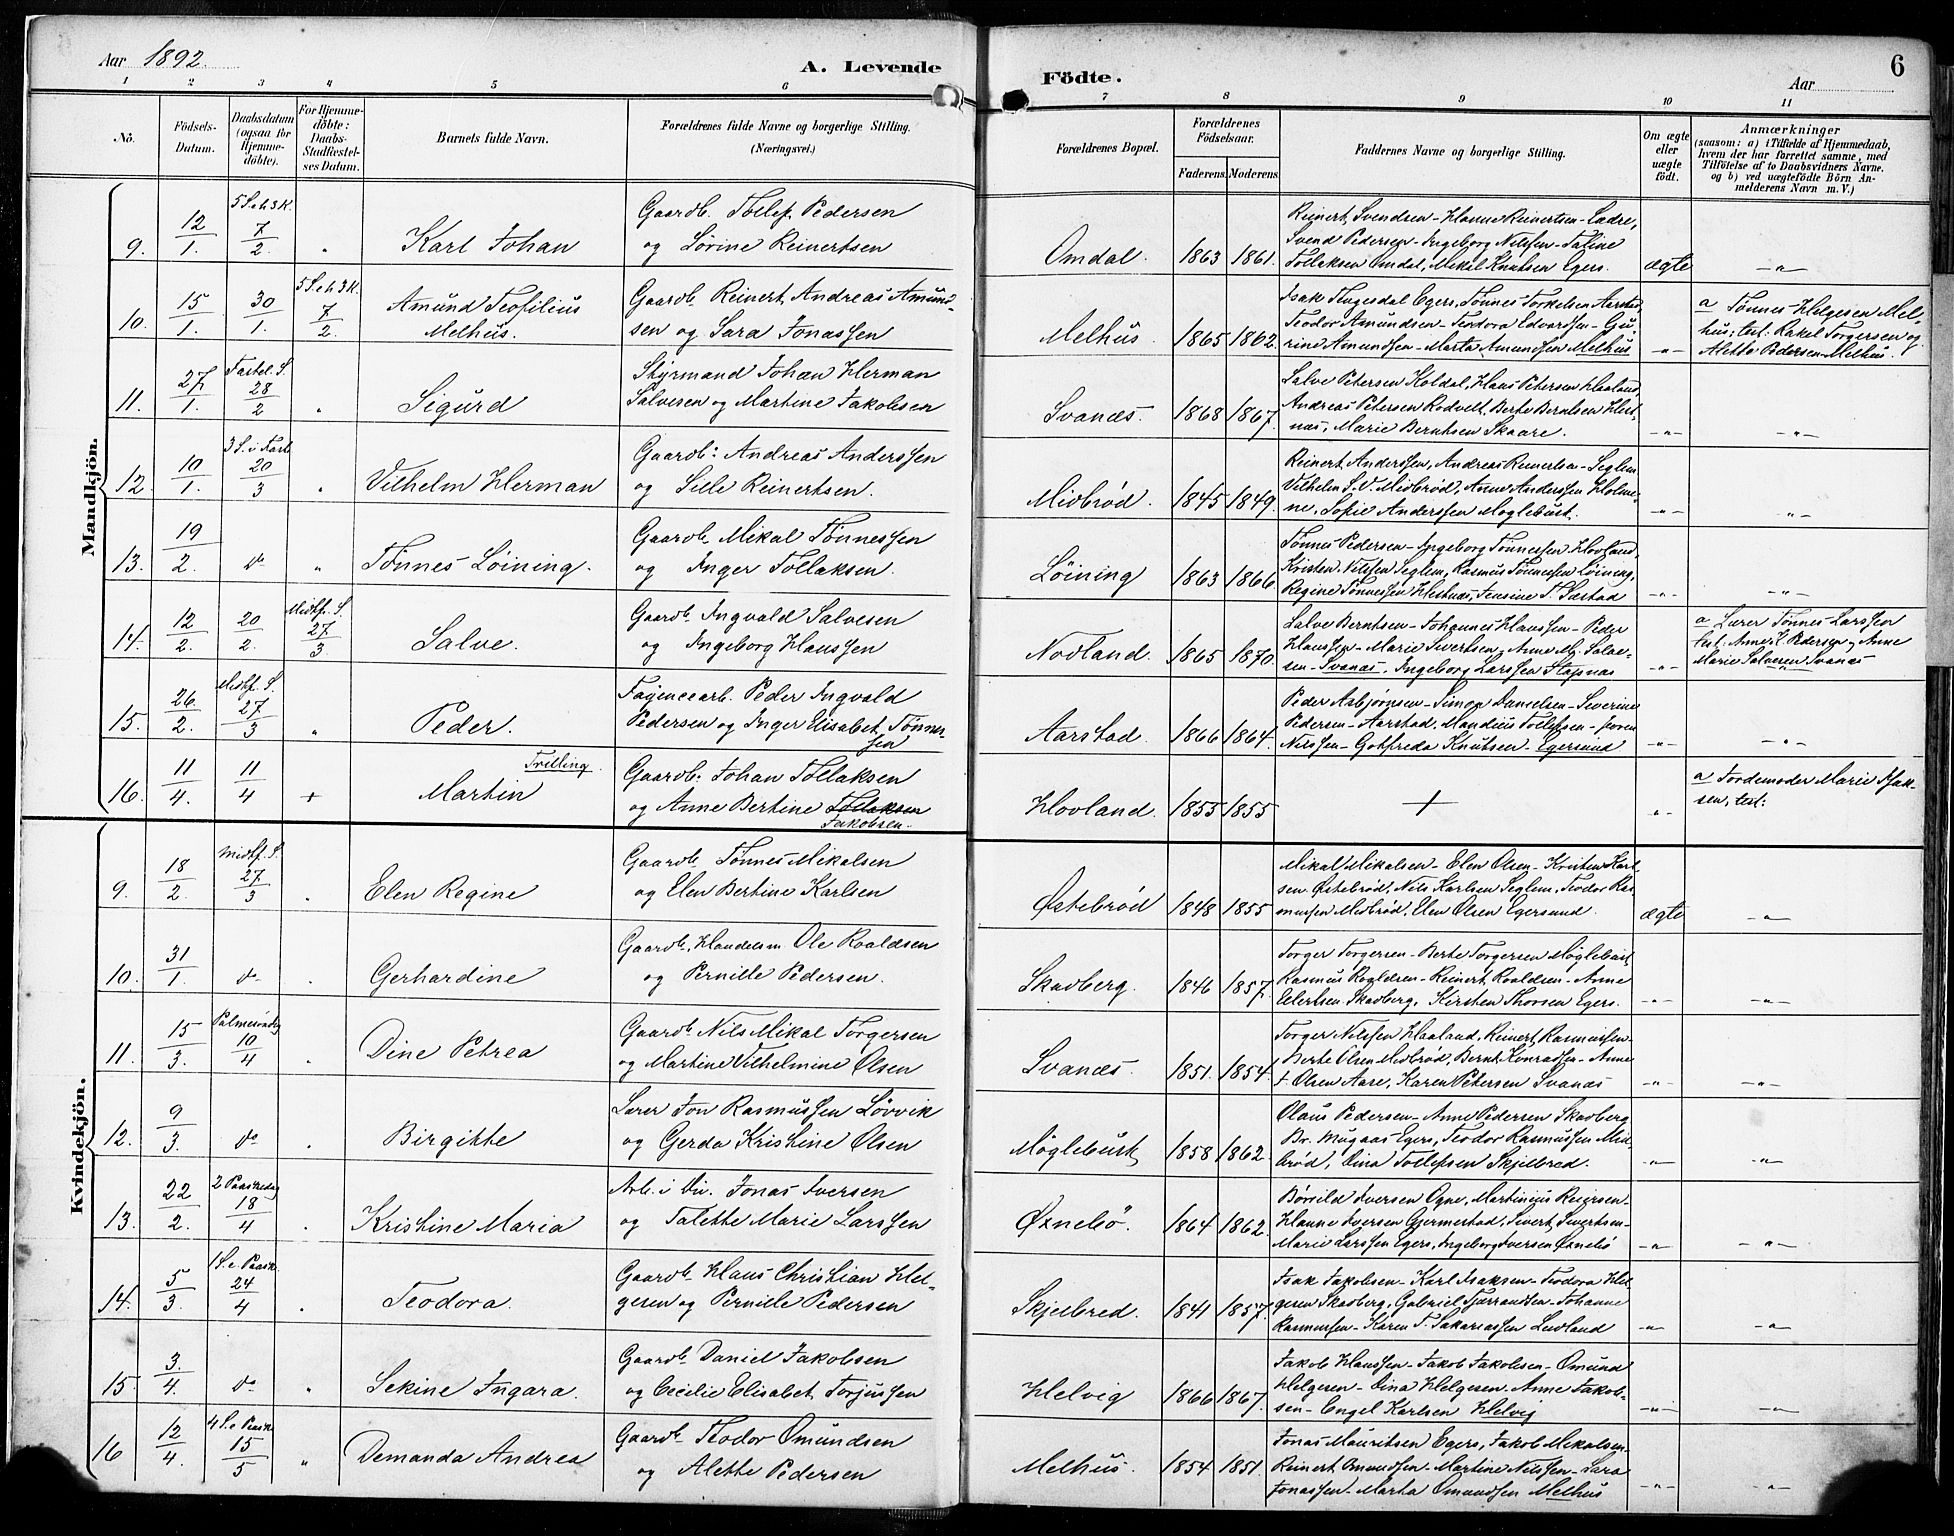 Aar 1892.
A. Levende
Födte.
Aar
6
1 2 3 4 5 6 7 8 9 10 11
No.
Födsels-Datum.
Daabsdatum (ogsaa for Hjemmedöbte).
For Hjemmedöbte: Daabs-Stadfæstelses Datum.
Barnets fulde Navn.
Forældrenes fulde Navne og borgerlige Stilling.
(Næringsvei.)
Forældrenes Bopæl.
Forældrenes Födselsaar.
Faderens. Moderens.
Faddernes Navne og borgerlige Stilling.
Om ægte eller uægte födt.
Anmærkninger
(saasom: a) i Tilfælde af Hjemmedaab, hvem der har forrettet samme, med Tilföielse af to Daabsvidners Navne. og b) ved uægtefödte Börn Anmelderens Navn m. V.)
Mandkjön.
9. 12/1. 5 S. e. h. 3 K. 7/2. „ Karl Johan
Gaardb. Tollef Pedersen
og Sørine Reinertsen
Omdal. 1863 1861.
Reinert Svendsen - Hanne Reinertsen - Lædre,
Svend Pedersen - Ingeborg Nilssen - Taline
Tollaksen Omdal, Mikal Knutsen Egers.
ægte —„—
10. 15/1. 30/1. 5 S. e. h. 3 K. 7/2. Amund Teofilius
Melhus.
Gaardb. Reinert Andreas Amund-
sen og Sara Jonassen
Melhus. 1865 1862.
Isak Tengesdal Egers, Tønnes Torkelsen Aarstad,
Teodor Amundsen - Teodora Edvardsen - Gu-
rine Amundsen - Marta Amundsen Melhus
—„—
a Tønnes Helgesen Mel-
hus; test: Rakel Torgersen og
Alette Pedersen Melhus.
11. 27/1. Fastel. S. 28/2 „ Sigurd
Styrmand Johan Herman
Salvesen og Martine Jakobsen
Svanæs. 1868 1867.
Salve Petersen Koldal, Hans Petersen Haaland,
Andreas Petersen Rodvelt, Berte Berntsen Hest-
næs, Marie Berntsen Skaare.
—„— —„—
12. 10/1. 3 S. i Faste 20/3 „ Vilhelm Herman
Gaardb: Andreas Anderssen
og Sille Reinertsen.
Midbrød. 1845 1849.
Reinert Anderssen, Andreas Reinertsen - Seglem
Vilhelm S. V. Midbrød, Anne Anderssen Holme-
ne, Sofie Anderssen Møglebust.
—„— —„—
13. 19/2. do „ Tønnes Løining.
Gaardb. Mikal Tønnessen
og Inger Tollaksen.
Løining 1863 1866
Tønnes Pedersen - Ingeborg Tønnessen Hovland,
Kristen Nilssen Seglem, Rasmus Tønnessen Løining,
Regine Tønnessen Hestnæs, Jensine T. Sæstad
—„— —„—
14. 12/2. 20/2. Midtf. S. 27/3 Salve.
Gaardb. Ingvald Salvesen
og Ingeborg Hanssen
Nodland. 1865 1870.
Salve Berntsen - Johannes Hanssen - Peder
Hanssen - Marie Sivertsen, Anne M. Salve-
sen - Svanæs, Ingeborg Larssen Stapnæs
—„—
a Lærer Tønnes Larssen
test: Anne K. Pedersen, Anne
Marie Salvesen Svanæs
15. 26/2. Midtf. S. 27/3 „ Peder.
Fayencearb. Peder Ingvald
Pedersen og Inger Elisabet Tønnes-
sen
Aarstad. 1866 1864.
Peder Asbjørnsen - Simon Danielsen - Severine
Pedersen - Aarstad, Mandius Tollefsen - Joren
Nilssen - Gotfreda Knutsen - Egersund
—„— —„—
16. 11/4. 11/4 + Trilling
Martin
Gaardb: Johan Tollaksen
og Anne Bertine Tollaksen
Jakobsen.
Hovland. 1855 1855
+
—„—
a Jordemoder Marie Isak-
sen, test:
Kvindekjön.
9. 18/2. Midtf. S. 27/3 „ Elen Regine
Gaardb. Tønnes Mikalsen
og Elen Bertine Karlsen
Østebrød 1848 1855
Mikal Mikalsen - Elen Olsen - Kristen Karl-
sen Østebrød, Nils Karlsen Seglem, Teodor Ras-
mussen Midbrød, Elen Olsen Egersund.
ægte —„—
10. 31/1. do „ Gerhardine
Gaardb. Handelsm Ole Roaldsen
og Pernille Pedersen.
Skadberg. 1846 1857.
Torger Torgersen - Berte Torgersen Møglebust,
Rasmus Rogldsen - Reinert Roaldsen - Anne
Eilertsen Skadberg, Kirsten Thorsen Egers.
—„— —„—
11. 15/3. Palmesøndag 10/4 „ Dine Petrea
Gaardb. Nils Mikal Torgersen
og Martine Vilhelmine Olsen
Svanæs. 1851. 1854.
Torger Nilssen Haaland, Reinert Rasmussen -
Berte Olsen Midbrød, Bernt Konradsen - Anne
+ Olsen Aase, Karen Petersen Svanæs
—„— —„—
12. 9/3. do „ Birgitte
Lærer Jon Rasmussen Løvvik
og Gerda Kristine Olsen
Møglebust, 1858 1862.
Olaus Pedersen - Anne Pedersen Skadberg
Br. Mugaas Egers, Teodor Rasmussen Mid-
brød, Dina Tollefsen Skjelbred.
—„— —„—
13. 22/2. 2 Paaskedag 18/4 „ Kristine Maria
Arb. i Div. Jonas Iversen
og Talette Marie Larssen
Øxnebø. 1864 1862.
Børsild Iversen Ogne, Martinius Regersen -
Hanne Iversen Gjermestad, Sivert Sivertsen -
Marie Larssen Egers, Ingeborg Iversen Øxnebø
—„— —„—
14. 5/3. 1 S. e. Paask. 24/4 „ Teodora.
Gaardb. Hans Christian Hel-
gesen og Pernille Pedersen
Skjelbred. 1841 1857.
Isak Jakobsen - Karl Isaksen - Teodora Hel-
gesen Skadberg, Gabriel Fjærrandsen - Johanne
Rasmussen - Karen T. Sakariassen Leidland
—„— —„—
15. 3./4. do „ Sekine Ingara.
Gaardb. Daniel Jakobsen
og Cecilie Elisabet Torjussen
Helvig 1866 1867.
Jakob Hanssen - Jakob Jakobsen - Omund
Helgesen - Dina Helgesen. Anne Jakob-
sen - Engel Karlsen Helvig
—„— —„—
16 12/4. 4 S. e. Paask. 15/5 „ Demanda Andrea
Gaardb. Teodor Omundsen
og Alette Pedersen
Melhus. 1854 1851.
Jonas Mauritsen Egers, Jakob Mikalsen -
Reinert Omundsen - Martine Nilssen - Sara
Jonassen - Marta Omundsen Melhus
—„— —„—